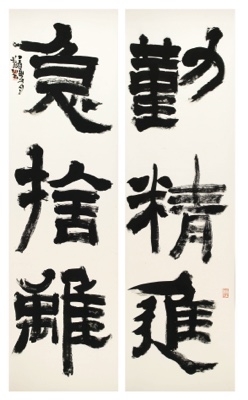 勤精進
急捨離